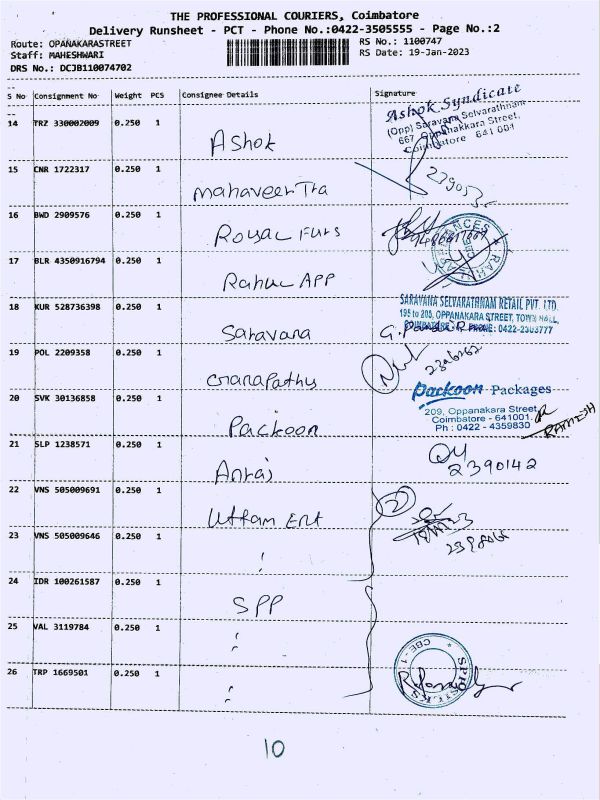 THE PROFESSIONAL COURIERS, Coimbatore
Delivery Runsheet - PCT - Phone No.:0422-3505555 - Page No.:2
Route: OPANAKARASTREET
RS No.: 1100747
Staff: MAHESHWARI
RS Date: 19-Jan-2023
DRS No.: DCJB110074702
S No Consignment No Weight PCS Consignee Details Signature
14 TRZ 330002009 0.250 1 Ashok
Ashok Syndicate
(Opp) Saravana Selvarathnam
667, Oppanakkara Street,
Coimbatore 641 001
15 CNR 1722317 0.250 1 Mahaveer Tra
16 BWD 2909576 0.250 1 Royal Furs
17 BLR 4350916794 0.250 1 Rahul APP
18 KUR 528736398 0.250 1 Saravana
SARAVANA SELVARATHNAM RETAIL PVT. LTD.
195 to 205, OPPANAKARA STREET, TOWN HALL,
COIMBATORE PHONE: 0422-2303777
19 POL 2209358 0.250 1 Ganapathy
20 SVK 30136858 0.250 1 Packoon
Packoon Packages
209, Oppanakara Street,
Coimbatore - 641001.
Ph : 0422 - 4359830
RAMESH
21 SLP 1238571 0.250 1
2390142
22 VNS 505009691 0.250 1 Uttam Ent
2
23 VNS 505009646 0.250 1 "
24 IDR 100261587 0.250 1 SPP
25 VAL 3119784 0.250 1 "
26 TRP 1669501 0.250 1 "
CBE-1
10